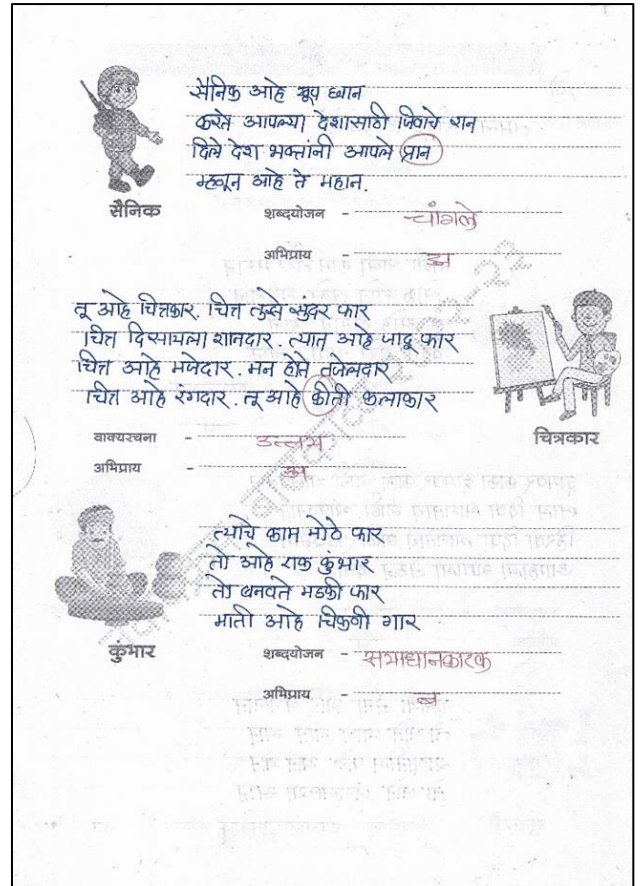 सैनिक आहे खूप छान
करते आपल्या देशासाठी जिवाचे रान
दिले देश भक्तांनी आपले प्रान
म्हणून आहे ते महान.
सैनिक
शब्दयोजन - चांगले
अभिप्राय -
तू आहे चित्रकार. चित्र तुझे सुंदर फार
चित्र दिसायला शानदार. त्यात आहे जादू फार
चित्र आहे मजेदार. मन होते तजेलदार
चित्र आहे रंगदार. तू आहे कीती कलाकार
वाक्यरचना - उत्तम
चित्रकार
अभिप्राय - अ
त्याचे काम मोठे फार
तो आहे एक कुंभार
तो बनवते मडकी फार
माती आहे चिकणी गार
कुंभार
शब्दयोजन - समाधानकारक
अभिप्राय - ब